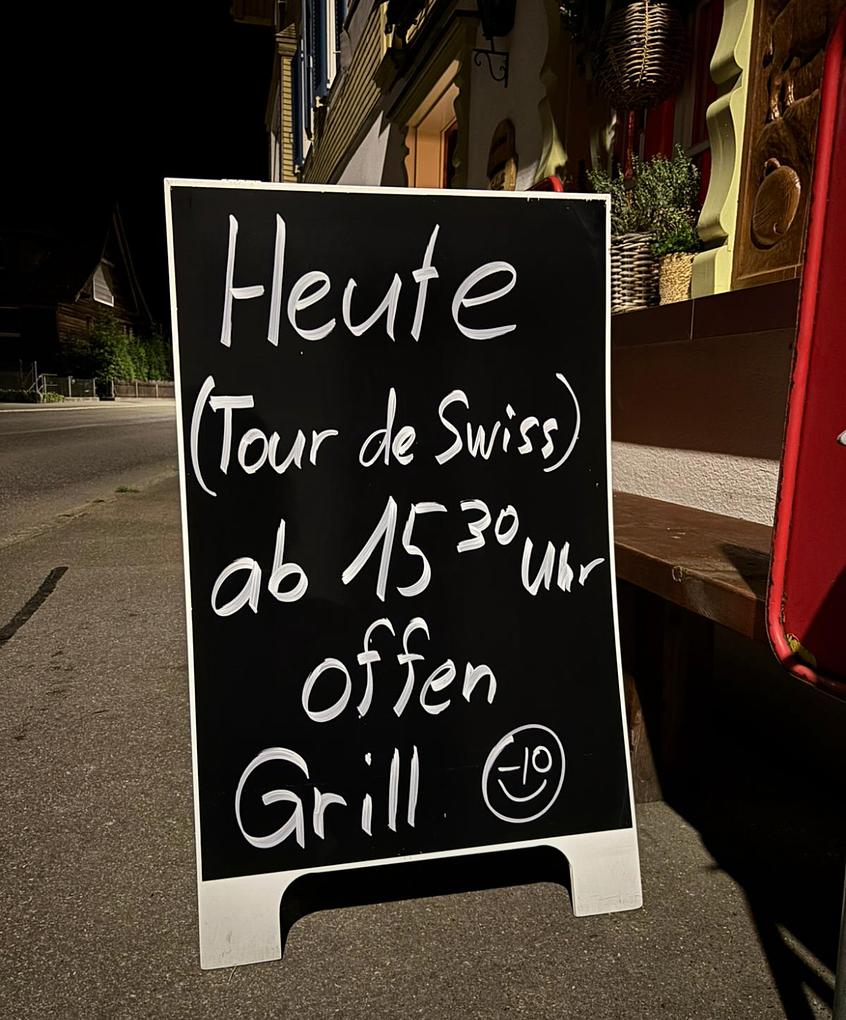 Heute
(Tour de Swiss)
ab 15 30 Uhr
offen
Grill